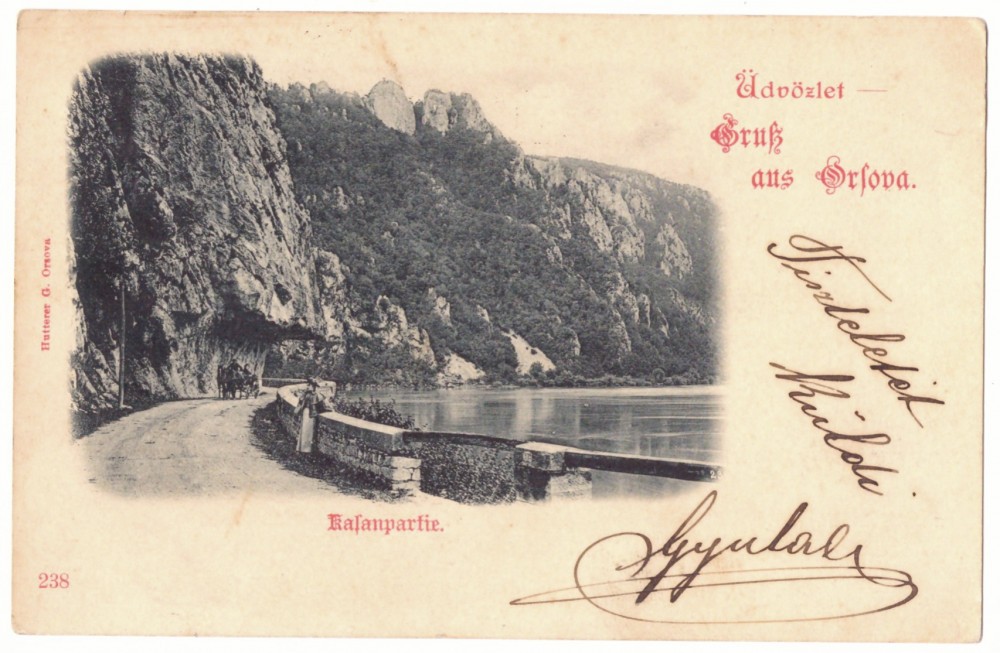 Üdvözlet —
Gruß
aus Orſova.
Hutterer G. Orsova
Tiszteletét
Küldi
Kaſanpartie.
238